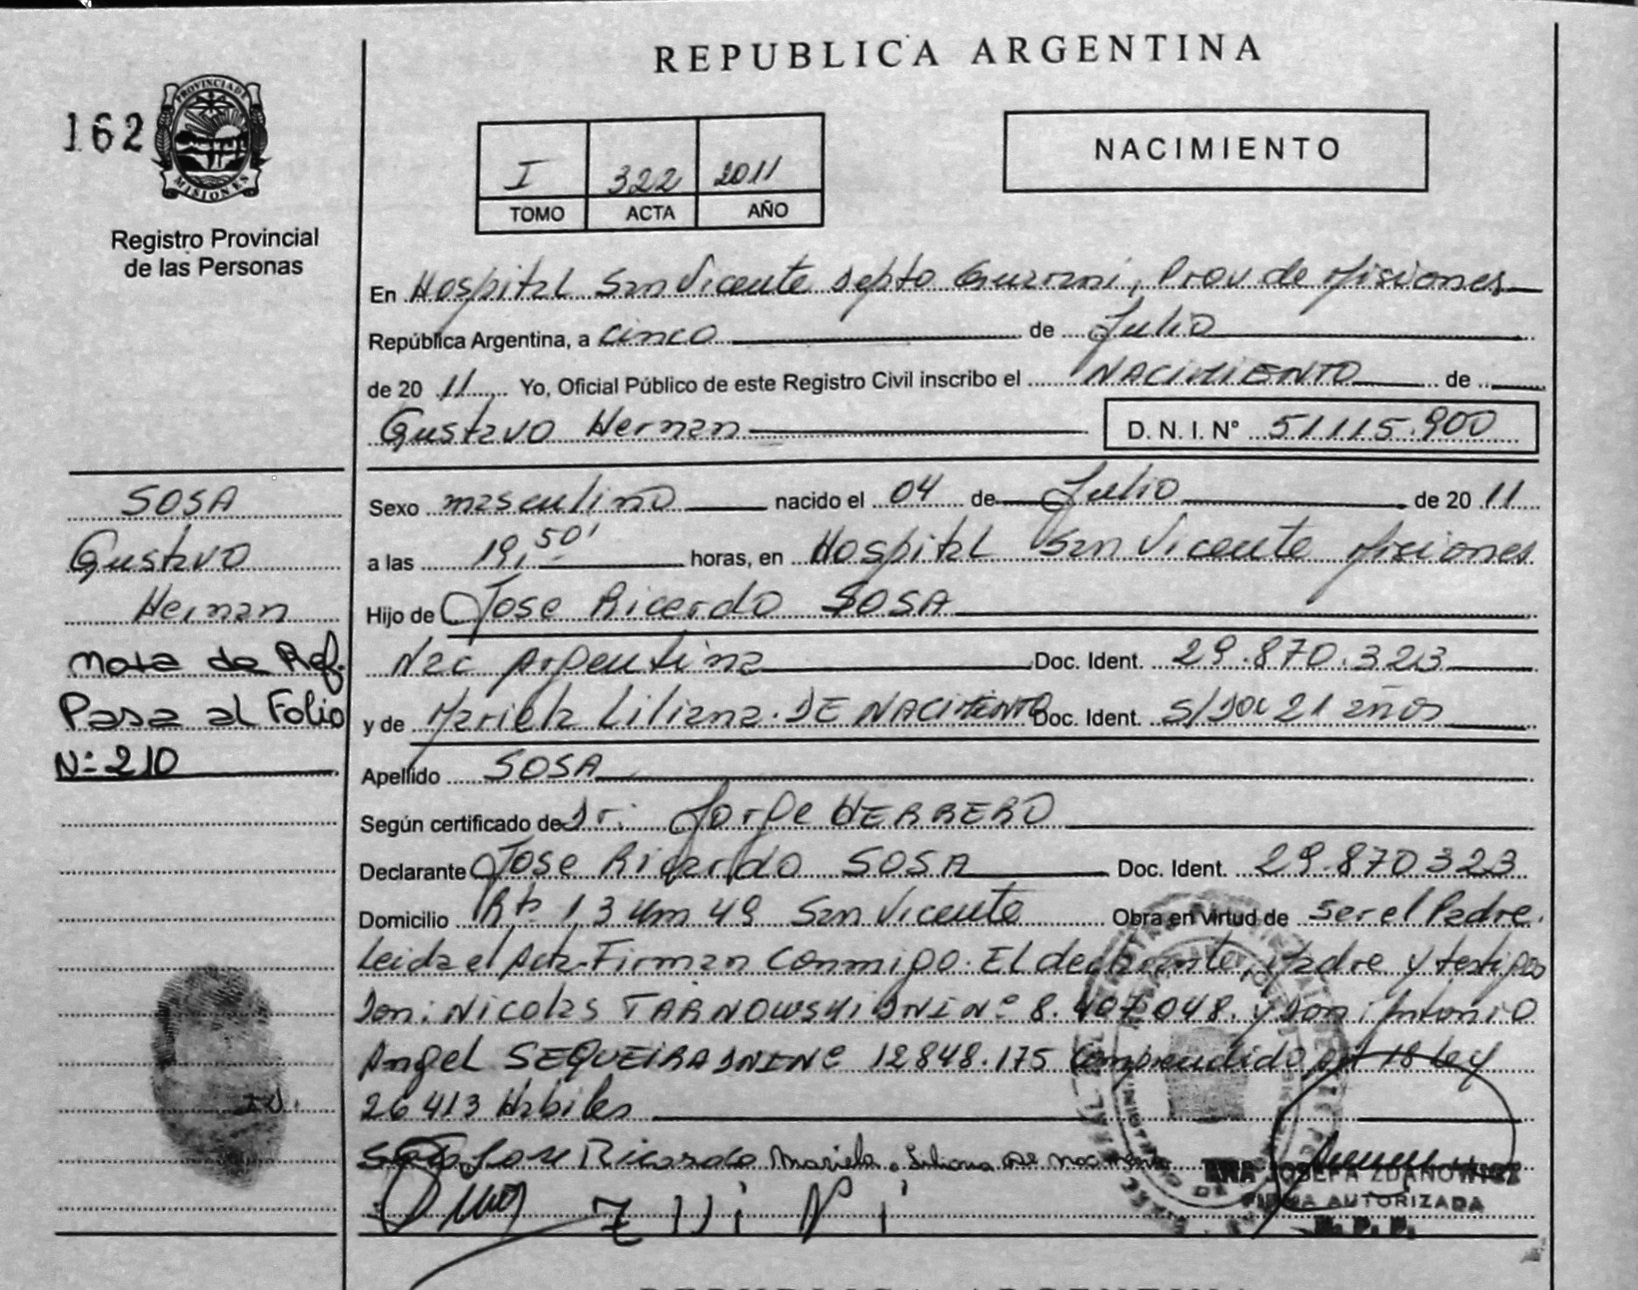 REPUBLICA ARGENTINA
162
PROVINCIA DE
MISIONES
Registro Provincial
de las Personas
I 322 2011
TOMO ACTA AÑO
NACIMIENTO
En Hospital San Vicente depto Guarani, Prov de Misiones
República Argentina, a cinco de Julio
de 20 11 Yo, Oficial Público de este Registro Civil inscribo el NACIMIENTO de
Gustavo Hernan D. N. I. N° 51115.900
SOSA
Gustavo
Hernan
Nota de Ref.
Pasa al Folio
N° 210
Sexo masculino nacido el 04 de Julio de 20 11
a las 19,50' horas, en Hospital San Vicente Misiones
Hijo de Jose Ricardo SOSA
Nac Argentina Doc. Ident. 29.870.323
y de Mariela Liliana. DE NACIMIENTO Doc. Ident. S/Doc 21 años
Apellido SOSA
Según certificado de Dr: Jorge HERRERO
Declarante Jose Ricardo SOSA Doc. Ident. 29.870323
Domicilio Rta 13 Km 49 San Vicente Obra en virtud de ser el Padre.
Leida el Acta. Firman Conmigo. El declarante, Madre y testigos
Don: Nicolas TARNOWSKI DNI N° 8.407.048. y Don: Antonio
Angel SEQUEIRA DNI N° 12848.175 Comprendido Art 18 Ley
26413 Habiles
Sosa Jose Ricardo Mariela. Liliana de nacimento
JOSEFA ZDANOWICZ
FIRMA AUTORIZADA
R. P. P.
REPUBLICA ARGENTINA